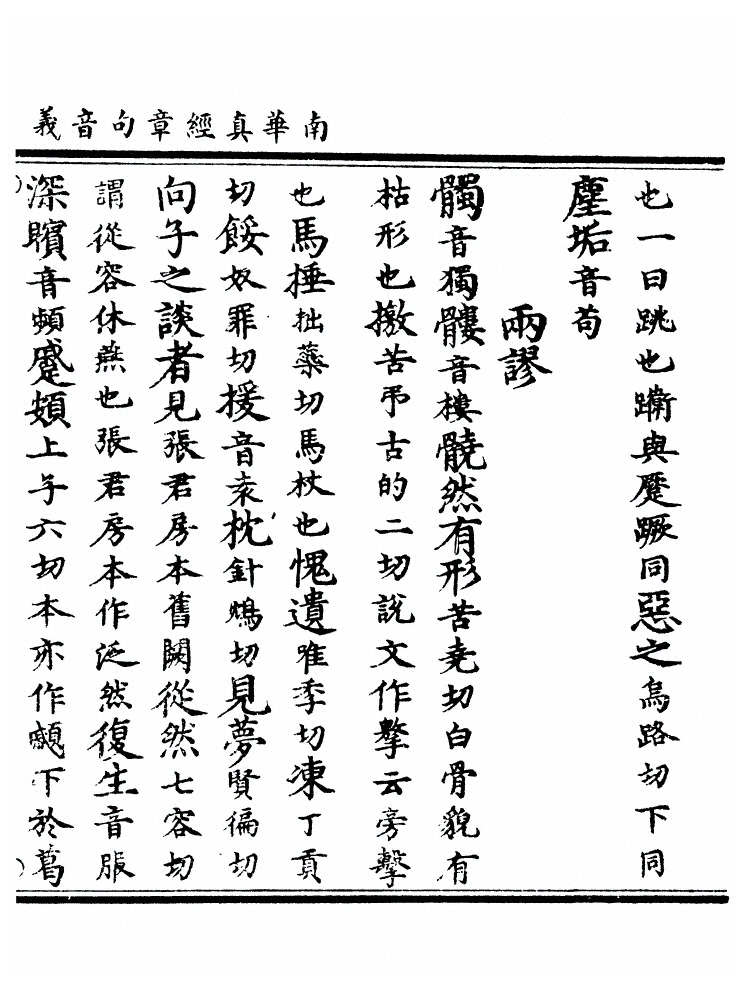 南華真經章句音義
也一曰跳也躛與躗蹶同惡之烏路切下同
塵垢音苟
兩謬
髑音獨髏音樓髐然有形苦堯切白骨貌有
枯形也撽苦弔古的二切說文作擊云旁擊
也馬捶拙蘂切馬杖也愧遺唯季切凍丁貢
切餒奴罪切援音袁枕針鴆切見夢賢徧切
向子之談者見張君房本舊闕從然七容切
謂從容休燕也張君房本作泛然復生音服
深矉音頻蹙頞上子六切本亦作顣下於葛